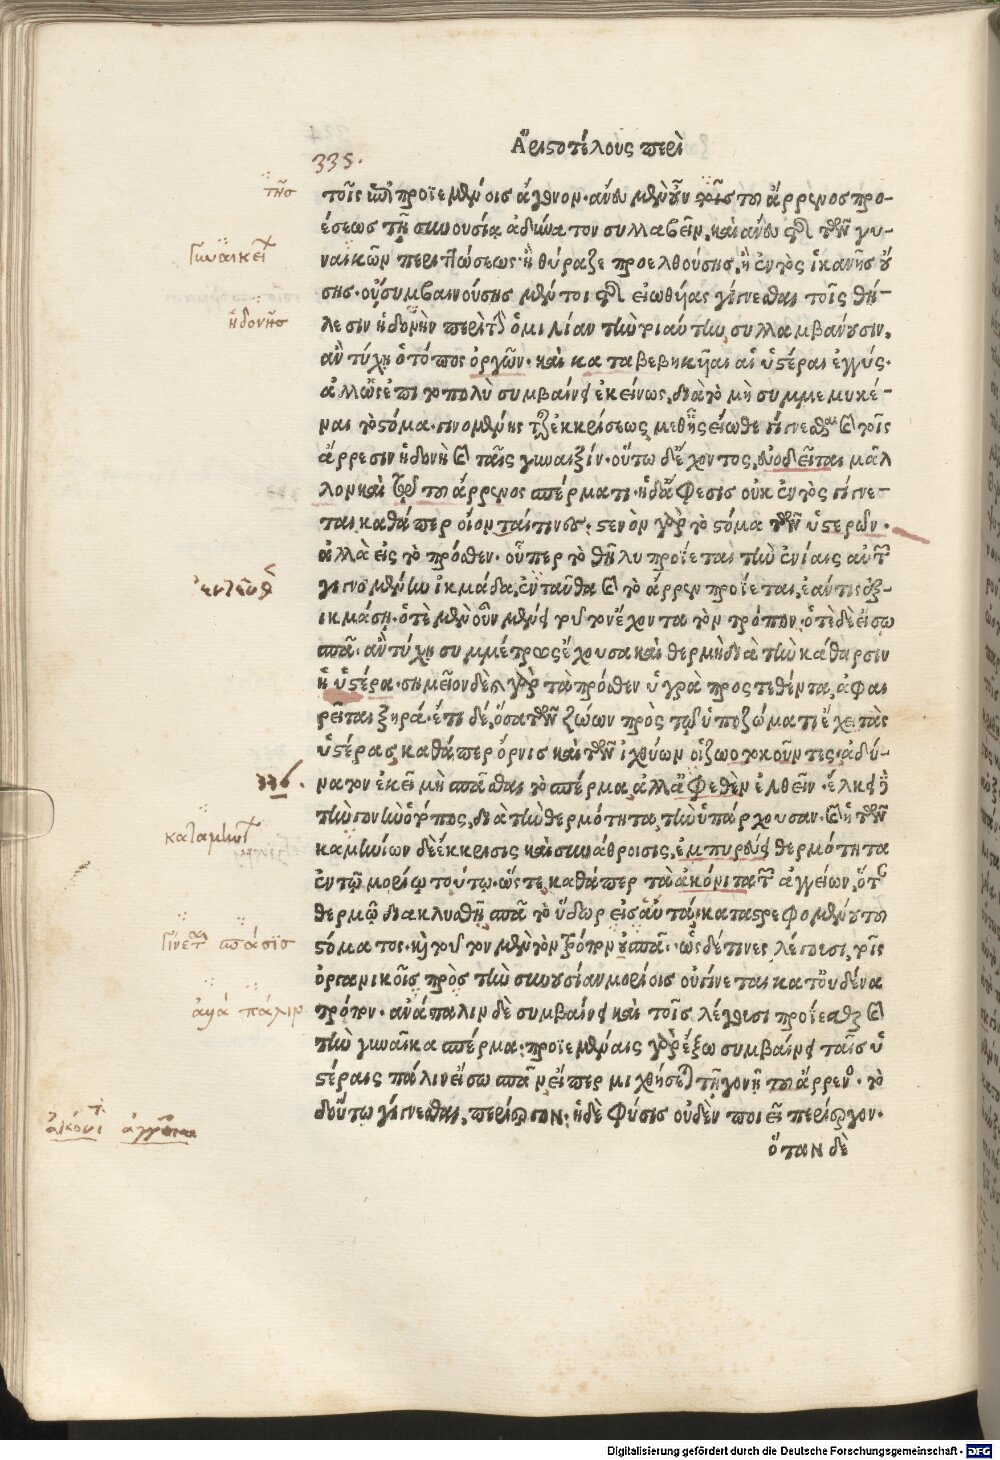 Ἀριστοτέλους περὶ
335.
τῆσ
τοῖς ὑπὸ προϊεμένοις ἄγονον· ἄνευ μὲν οὖν τῆς τοῦ ἄρρενος προ-
έσεως τῇ συνουσίᾳ ἀδύνατον συλλαβεῖν, καὶ ἄνευ τῆς τῶν γυ-
Γυναικεί
ναικῶν περιπτώσεως· ἢ θύραζε προελθούσης, ἢ ἐντὸς ἱκανῆς οὔ
σης· οὐ συμβαινούσης μέντοι τῆς εἰωθυίας γίνεσθαι τοῖς θή-
ἡδονῆσ
λεσιν ἡδονὴν περὶ τὴν ὁμιλίαν τὴν τοιαύτην, συλλαμβάνουσιν,
ἂν τύχῃ ὁ τόπος ὀργῶν· καὶ καταβεβηκυῖαι αἱ ὑστέραι ἐγγύς·
ἀλλ' ὡς ἐπὶ τὸ πολὺ συμβαίνει ἐκείνως, διὰ τὸ μὴ συμμεμυκέ-
ναι τὸ στόμα· γινομένης τῆς ἐκκρίσεως, μεθ' ἧς εἴωθε γίνεσθαι καὶ τοῖς
ἄρρεσιν ἡδονὴ καὶ ταῖς γυναιξίν· οὕτω δ' ἔχοντος, εὐοδεῖται μᾶλ
λον καὶ τῷ τοῦ ἄρρενος σπέρματι· ἡ δ' ἄφεσις οὐκ ἐντὸς γίνε-
ται καθάπερ οἴονταί τινες· στενὸν γὰρ τὸ στόμα τῶν ὑστερῶν·
ἀλλὰ εἰς τὸ πρόσθεν· οὗπερ τὸ θῆλυ προΐεται τὴν ἐνίαις αὐτῶν
γινομένην ἰκμάδα, ἐνταῦθα καὶ τὸ ἄρρεν προΐεται, ἐάν τις ἐξ-
ικμάσῃ· ὁτὲ μὲν οὖν μένει τοῦτον ἔχοντα τὸν τρόπον· ὁτὲ δὲ εἴσω
σπᾷ· ἂν τύχῃ συμμέτρως ἔχουσα καὶ θερμὴ διὰ τὴν κάθαρσιν
ἡ ὑστέρα· σημεῖον δὲ· καὶ γὰρ τὰ πρόσθεν ὑγρὰ προστεθέντα, ἀφαι
ρεῖται ξηρά· ἔτι δέ, ὅσα τῶν ζώων πρὸς τῷ ὑποζώματι ἔχει τὰς
ὑστέρας καθάπερ ὄρνις καὶ τῶν ἰχθύων οἱ ζωοτοκοῦντες· ἀδύ-
336.
νατον ἐκεῖ μὴ σπᾶσθαι τὸ σπέρμα, ἀλλ' ἀφεθὲν ἐλθεῖν· ἕλκει δὲ
τὴν γονὴν ὁ τόπος, διὰ τὴν θερμότητα, τὴν ὑπάρχουσαν· καὶ ἡ τῶν
καταμηνί
καμηνίων δὲ ἔκκρισις καὶ συνάθροισις, ἐμπυρεύει θερμότητα
ἐν τῷ μορίῳ τούτῳ· ὥστε καθάπερ τὰ ἀκόνιτα τῶν ἀγγείων, ὅταν
θερμῷ διακλυσθῇ σπᾷ τὸ ὕδωρ εἰς αὑτά, καταστρεφομένου τοῦ
γίνεται σπάσις
στόματος· καὶ τοῦτον μὲν τὸν τρόπον οὐ σπᾷ· ὡς δέ τινες λέγουσι, τοῖς
ὀργανικοῖς πρὸς τὴν συνουσίαν μορίοις οὐ γίνεται κατ' οὐδένα
ἀνὰ πάλιν
τρόπον· ἀνάπαλιν δὲ συμβαίνει καὶ τοῖς λέγουσι προΐεσθαι καὶ
τὴν γυναῖκα σπέρμα· προϊεμέναις γὰρ ἔξω συμβαίνει ταῖς ὑ
στέραις πάλιν εἴσω σπᾶν εἴπερ μιχθήσεται τῇ γονῇ τοῦ ἄρρενος· τὸ
ἀκόνι ἀγγεῖα
δ' οὕτω γίνεσθαι, περίεργον· ἡ δὲ φύσις οὐδὲν ποιεῖ περίεργον·
ὅταν δὲ
Digitalisierung gefördert durch die Deutsche Forschungsgemeinschaft - DFG